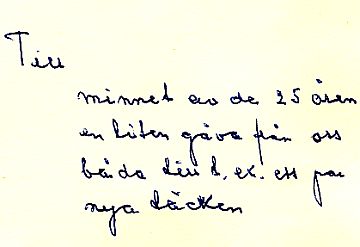 Till
minnet av de 25 åren
en liten gåva från oss
båda till t. ex. ett par
nya täcken